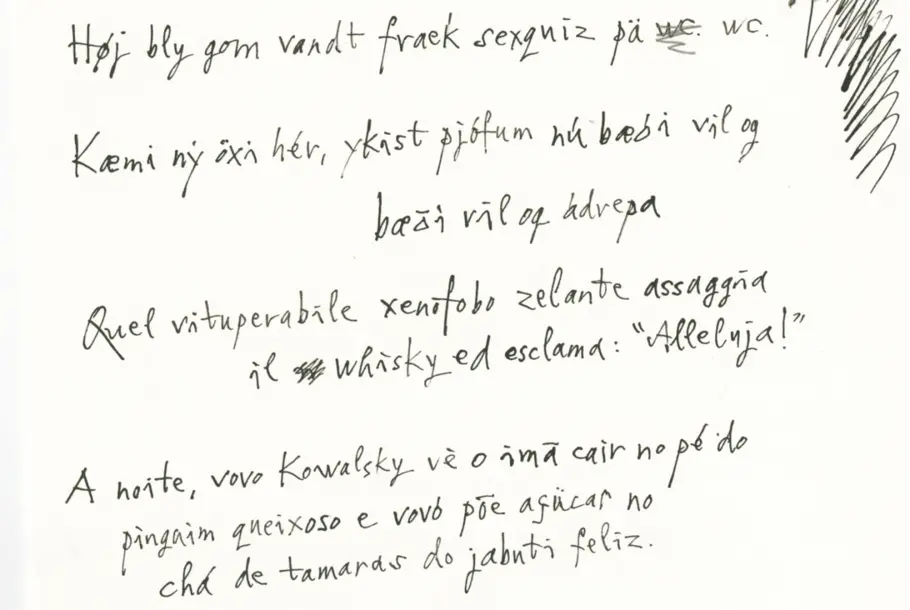 Høj bly gom vandt fraek sexquiz pä wc. wc.
Kæmi ný öxi hér, ykist þjófum nú bæði víl og
bæði víl og ádrepa
Quel vituperabile xenofobo zelante assaggia
il whisky ed esclama: “Alleluja!”
A noite, vovo Kowalsky vè o imã cair no pé do
pinguim queixoso e vovó põe açúcar no
chá de tamaras do jabuti feliz.